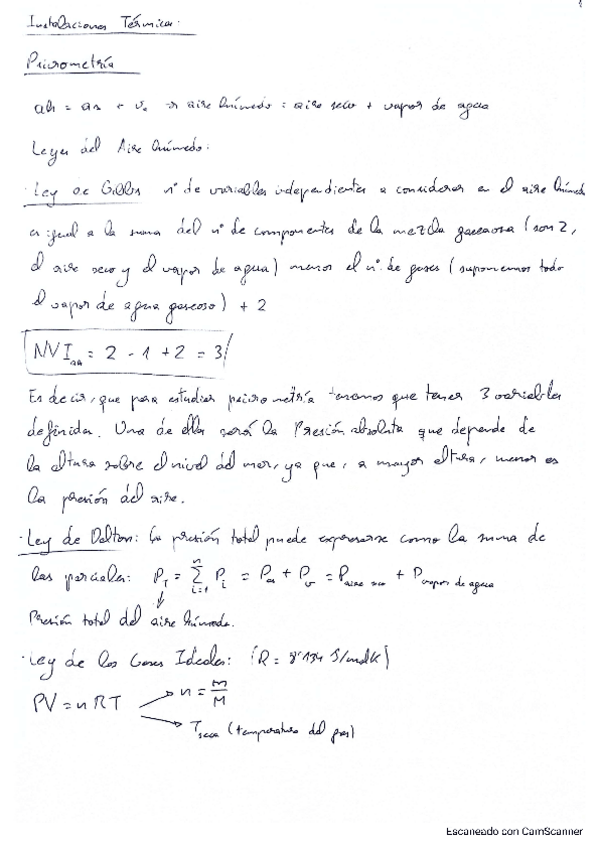 Instalaciones Térmicas.
Psicrometría
ah = as + v. → aire húmedo = aire seco + vapor de agua
Leyes del Aire húmedo:
· Ley de Gibbs nº de variables independientes a considerar en el aire húmedo
es igual a la suma del nº de componentes de la mezcla gaseosa (son 2,
el aire seco y el vapor de agua) menos el nº de gases (suponemos todo
el vapor de agua gaseoso) + 2
NVI = 2 - 1 + 2 = 3
Es decir, que para estudiar psicrometría tenemos que tener 3 variables
definidas. Una de ellas será la Presión absoluta que depende de
la altura sobre el nivel del mar, ya que, a mayor altura, menor es
la presión del aire.
· Ley de Dalton: La presión total puede expresarse como la suma de
las parciales: P_T = Σ_{i=1}^{n} P_i = P_as + P_v = P_aire seco + P_vapor de agua
Presión total del aire húmedo.
· Ley de los Gases Ideales: (R = 8'134 J/molK)
PV = nRT → n = m/M
→ T_seca (temperatura del gas)
Escaneado con CamScanner